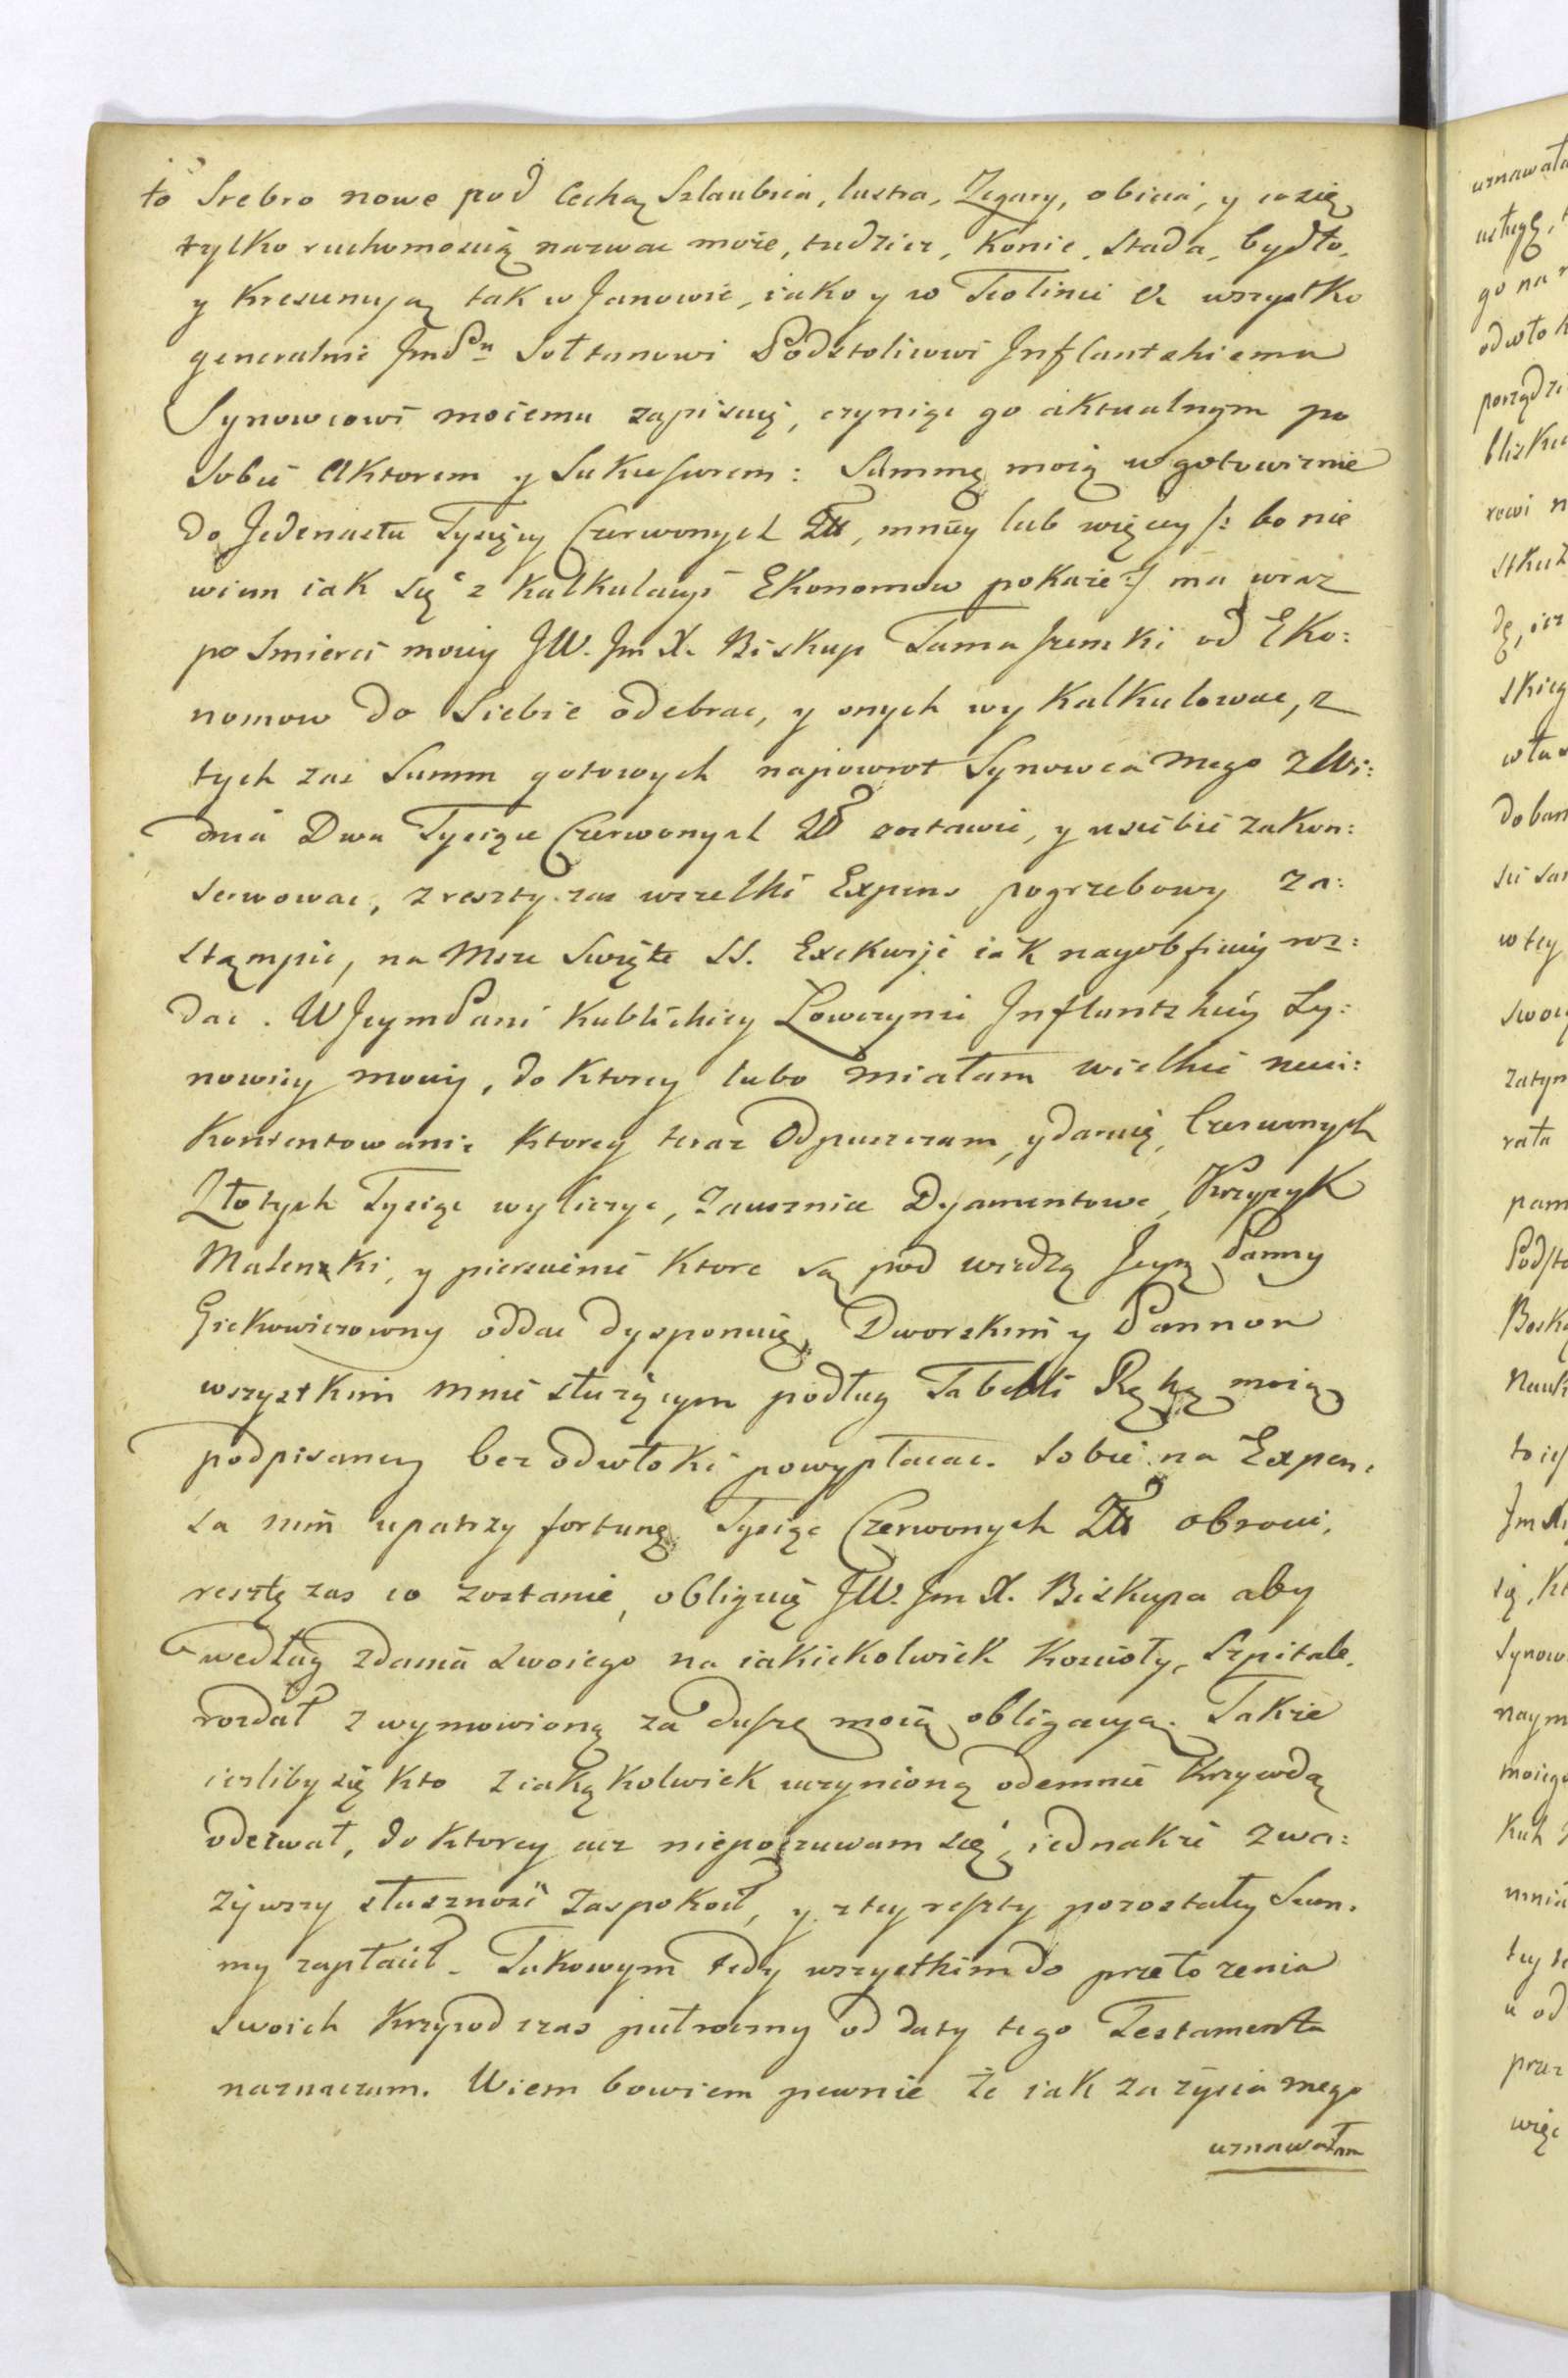 to Srebro nowe pod Cechą Szlaubria, lustra, Zegary, obicia, y co się
tylko ruchomością nazwac może, tudziez, Konie, Stada, bydło,
y Kresuncyą tak w Janowie, iako y w Teolinie & wszystko
generalnie JmPn Sołtanowi Podstoliwowi Inflantskiemu
Synowcowi moiemu zapisuię, czyniąc go aktualnym po
Sobie Aktorem y Sukcessorem: Summę moię w gotowiznie
do Jedenastu Tysięcy Czerwonych Złł, mniey lub więcey /: bo nie
wiem iak się z Kalkulacyi Ekonomow pokaże :/ ma wraz
po Smierci moiey JW. Jm X. Biskup Tomaszewski od Eko:
nomow do Siebie odebrac, y onych wy Kalkulowac, z
tych zas Summ gotowych napowrot Synowca Mego z Wi:
dnia Dwa Tysiące Czerwonych Zł zostawic, y u siebie zakon:
serwowac, z reszty zas wszelki Expens pogrzebowy za:
stąmpic, na Msze Swięte SS. Exekwije iak nayobficiey roz:
dac. W JeymPani Kublickiey Łowczynie Inflantskiey Sy:
nowicy moiey, do Ktorey lubo miałam wielkie nieu:
Kontentowanie Ktorey teraz Odpuszczam, y daruię, Czerwonych
Złotych Tysiąc wyliczyc, Zausznice Dyamentowe, Krzyzyk
Malenki, y pierscienie Ktore są pod wiedzą Jeym Panny
Gickowiczowny oddac dysponuię. Dworskim y Pannom
wszystkim mnie służącym podług Tabelli Ręką moią
podpisaney bez odwłoki powypłacac. Sobie na Expen,
sa nim upatrzy fortunę Tysiąc Czerwonych Złł obroci,
resztę zas co zostanie, obliguię JW. Jm X. Biskupa aby
według zdania swoiego na iakiekolwiek Koscioły, Szpitale,
rozdał z wymowioną za duszę moią obligacyą. Takze
iesliby się Kto z iaką Kolwiek uczynioną odemnie Krzywdą
odezwał, do Ktorey acz niepoczuwam się, iednakże zwa:
żywszy słusznosc Zaspokoił, y z tey reszty pozostałey Sum,
my zapłacił. Takowym tedy wszystkim do przełozenia
swoich Krzywd czas pułroczny od daty tego Testamentu
naznaczam. Wiem bowiem pewnie że iak za życia mego
uznawałam